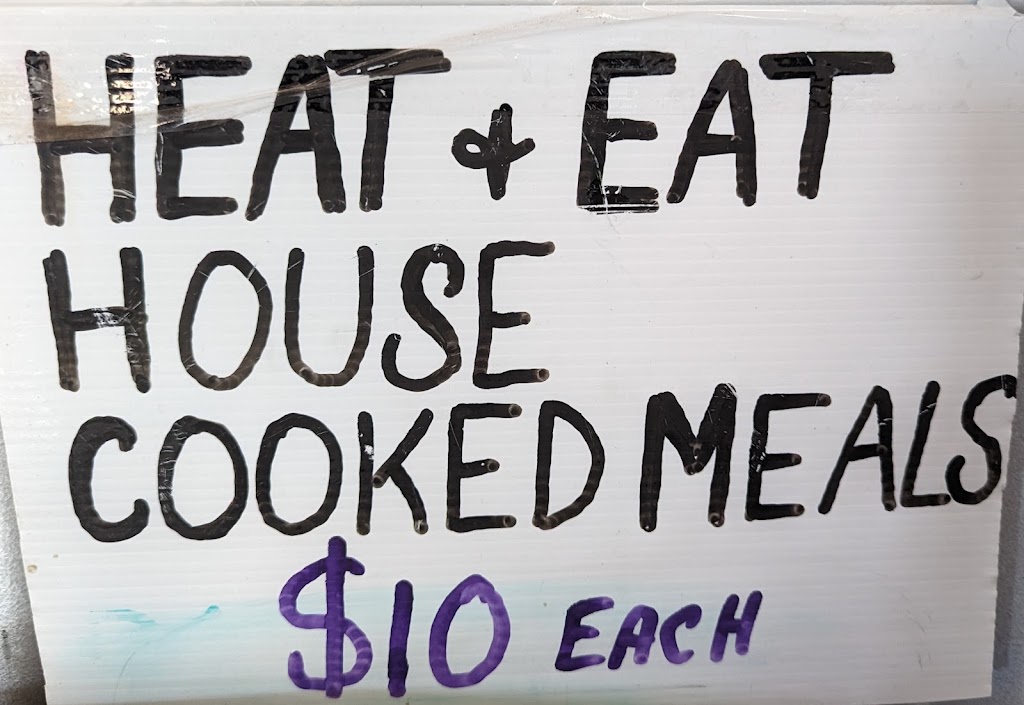 HEAT & EAT
HOUSE
COOKED MEALS
$10 EACH